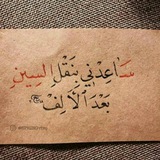 سَاعِدْنِي بِنَقْلِ السِينِ
بَعْدَ الْأَلِفْ